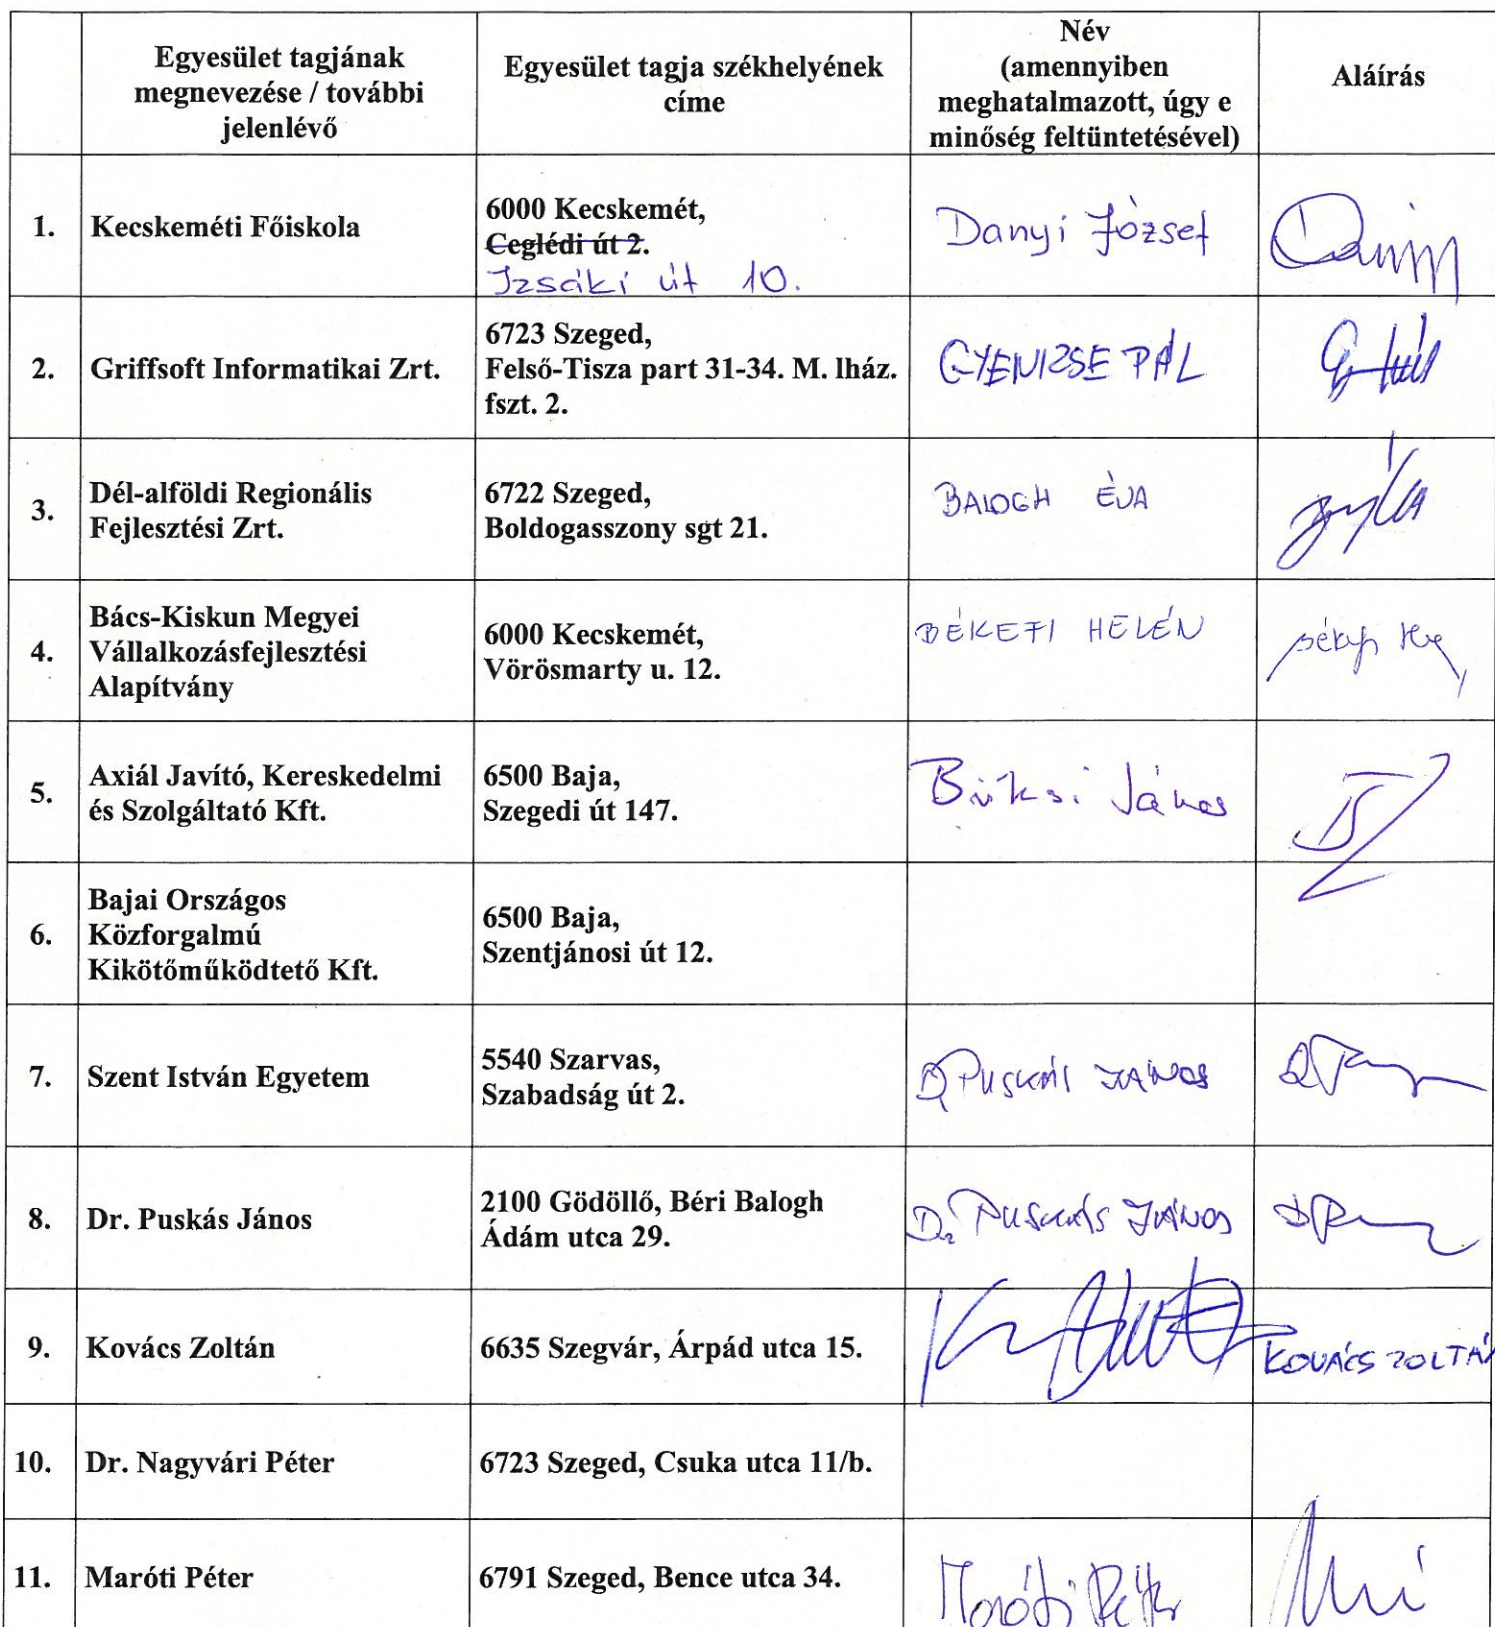 Egyesület tagjának
megnevezése / további
jelenlévő
Egyesület tagja székhelyének
címe
Név
(amennyiben
meghatalmazott, úgy e
minőség feltüntetésével)
Aláírás
1.
Kecskeméti Főiskola
6000 Kecskemét,
Ceglédi út 2.
Izsáki út 10.
Danyi József
2.
Griffsoft Informatikai Zrt.
6723 Szeged,
Felső-Tisza part 31-34. M. lház.
fszt. 2.
GYENIZSE PÁL
3.
Dél-alföldi Regionális
Fejlesztési Zrt.
6722 Szeged,
Boldogasszony sgt 21.
BALOGH ÉVA
4.
Bács-Kiskun Megyei
Vállalkozásfejlesztési
Alapítvány
6000 Kecskemét,
Vörösmarty u. 12.
BÉKEFI HELÉN
5.
Axiál Javító, Kereskedelmi
és Szolgáltató Kft.
6500 Baja,
Szegedi út 147.
János
6.
Bajai Országos
Közforgalmú
Kikötőműködtető Kft.
6500 Baja,
Szentjánosi út 12.
7.
Szent István Egyetem
5540 Szarvas,
Szabadság út 2.
Dr PUSKÁS JÁNOS
8.
Dr. Puskás János
2100 Gödöllő, Béri Balogh
Ádám utca 29.
Dr PUSKÁS JÁNOS
9.
Kovács Zoltán
6635 Szegvár, Árpád utca 15.
KOVÁCS ZOLTÁN
10.
Dr. Nagyvári Péter
6723 Szeged, Csuka utca 11/b.
11.
Maróti Péter
6791 Szeged, Bence utca 34.
Maróti Péter